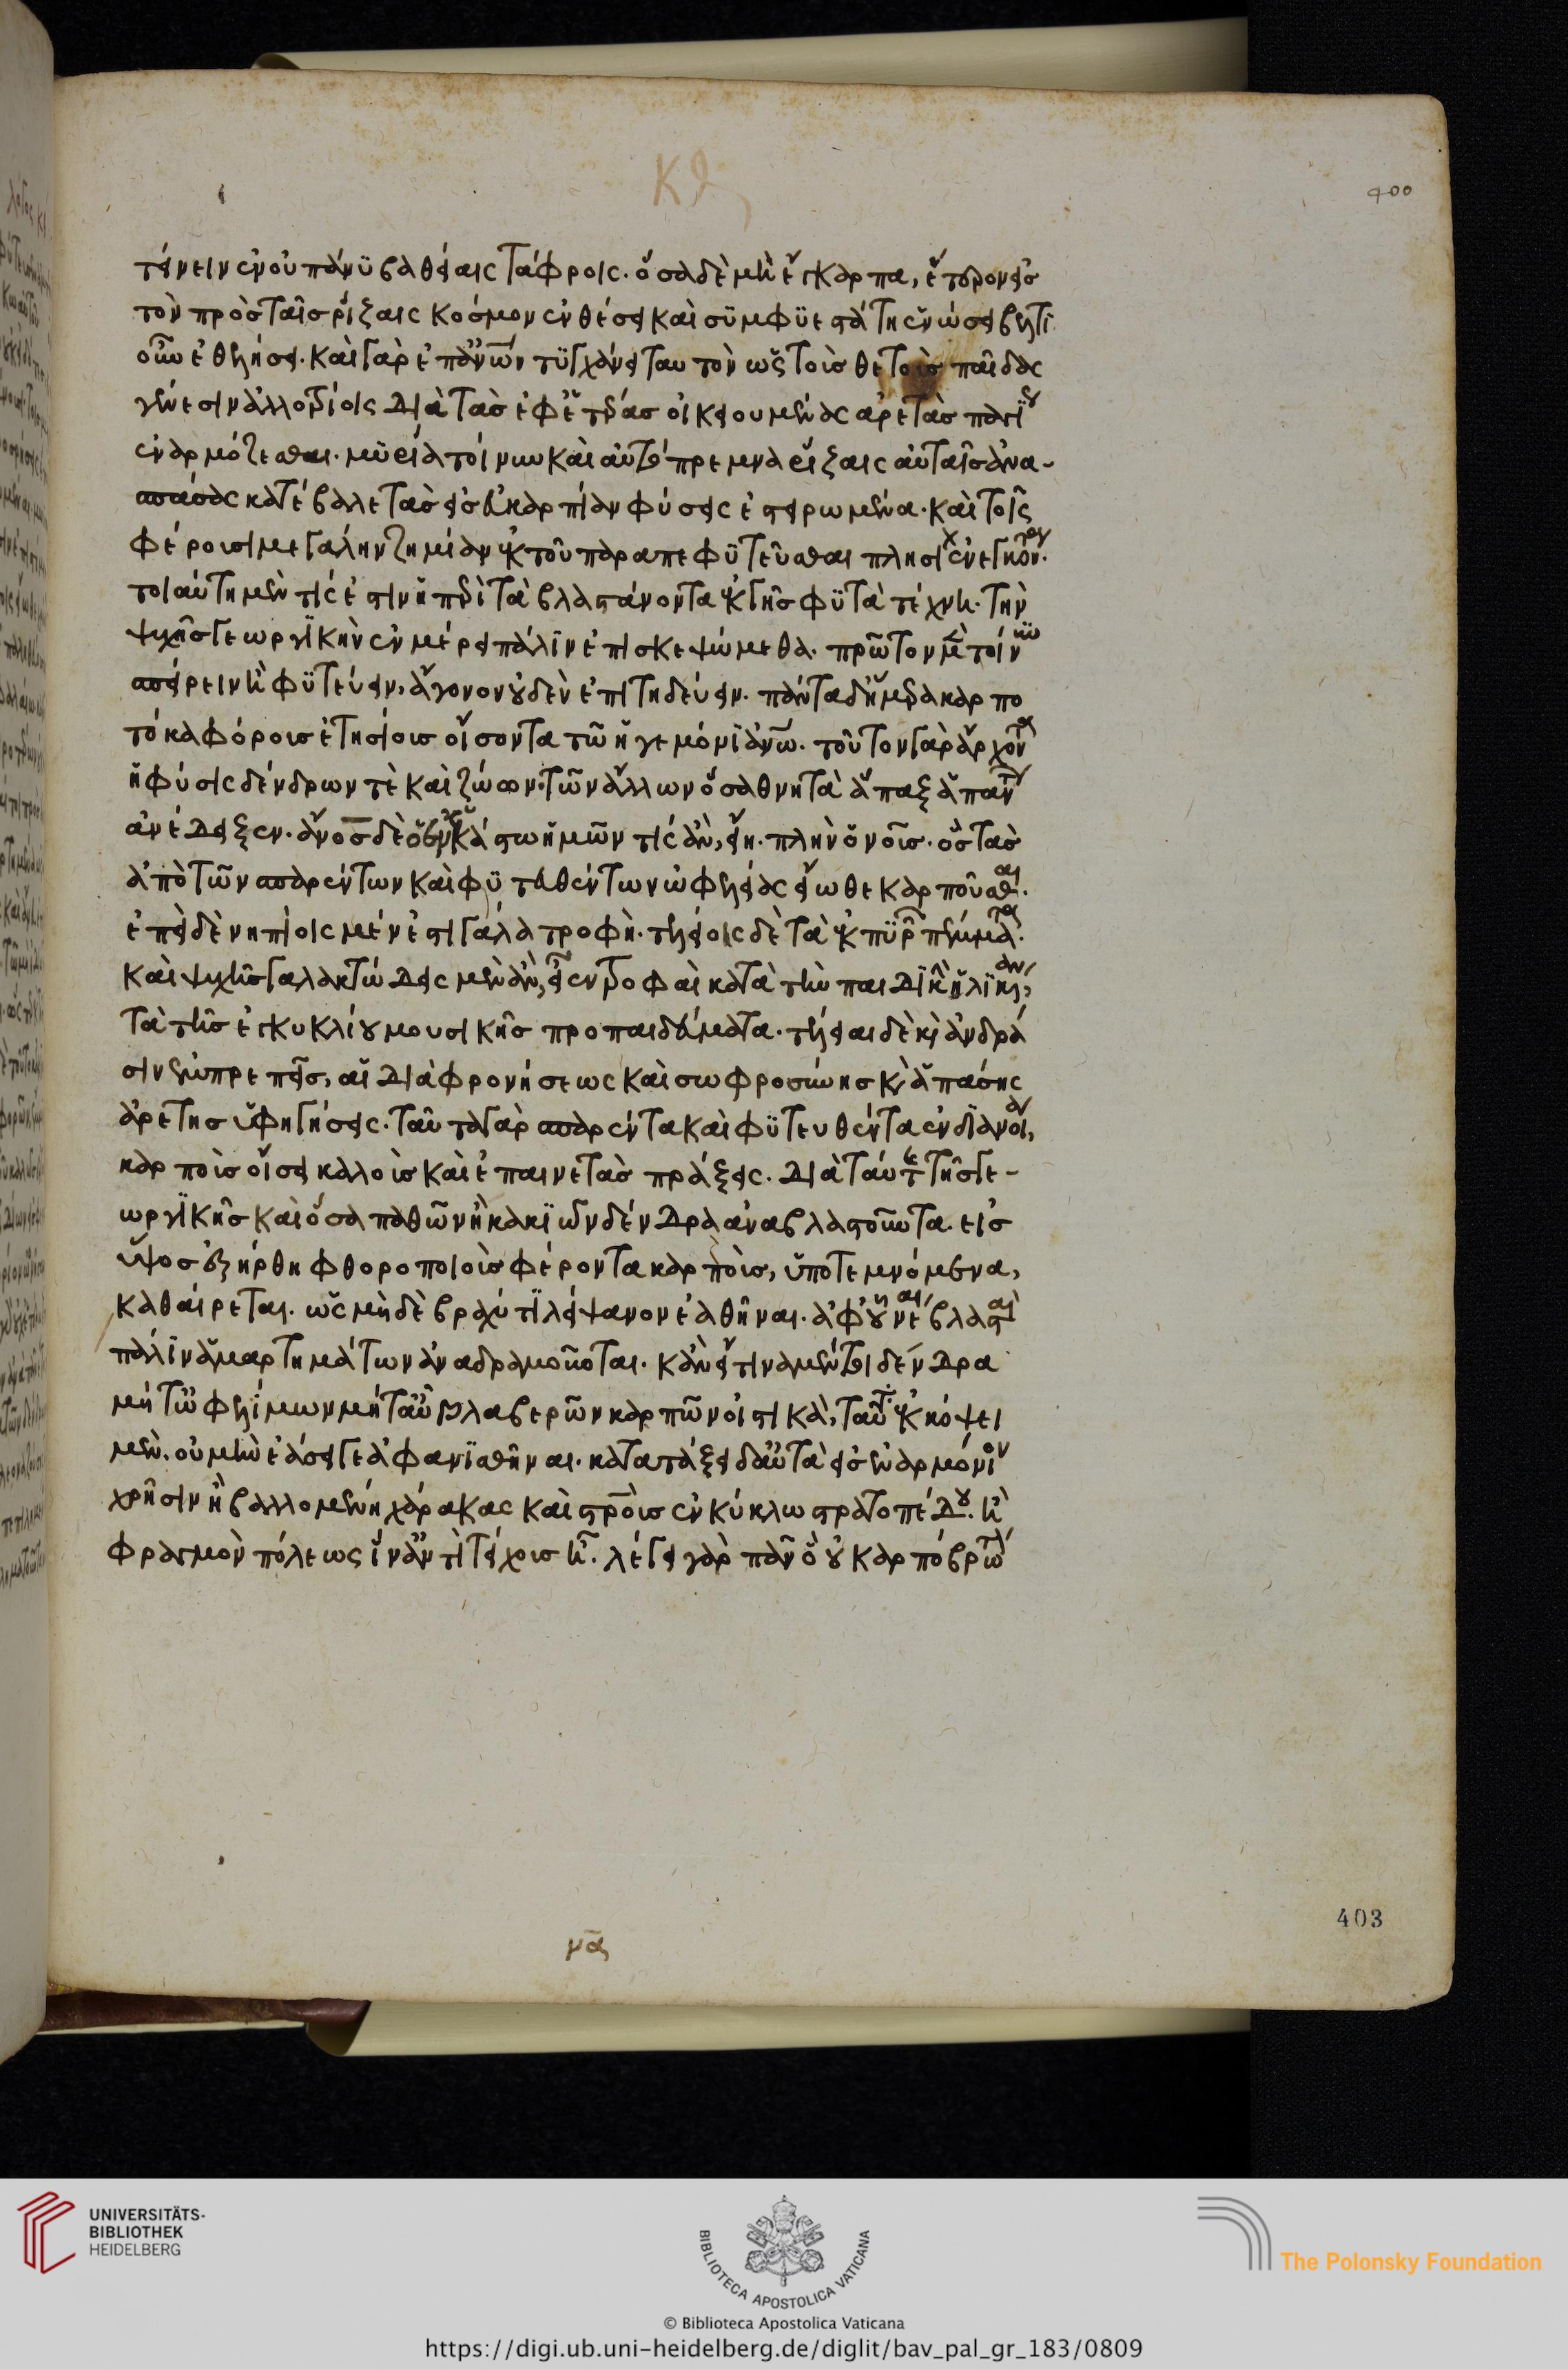 400
κθ
τείνειν ἐν οὐ πάνυ βαθείαις τάφροις. ὅσα δὲ μὴ εὔκαρπα, ἕτερον εἰς
τὸν πρὸς ταῖς ῥίζαις κόσμον ἐνθέσει καὶ συμφυεστάτη ἑνώσει βελτι
οῦν ἐθελήσει. καὶ γὰρ ἐπ' ἀνθρώπων τυγχάνει ταυτὸν ὡς τοὺς θετοὺς παῖδας
γένεσιν ἀλλοτρίοις διὰ τὰς οἰκειουμένας ἀρετὰς
ἐναρμόζεσθαι. μυρία τοίνυν καὶ αὐτόπρεμνα ῥίζαις αὐταῖς ἀνα-
σπάσας κατέβαλε τὰς εἰς εὐκαρπίαν φύσεις ἐστειρωμένα. καὶ τοῖς
φέρουσι μεγάλην ζημίαν ἐκ τοῦ παραπεφυτεῦσθαι πλησίον ἐνεγκόντα.
τοιαύτη μέν τίς ἐστιν ἡ περὶ τὰ βλαστάνοντα ἐκ γῆς φυτὰ τέχνη. τὴν
ψυχῆς γεωργικὴν ἐν μέρει πάλιν ἐπισκεψώμεθα. πρῶτον μὲν τοίνυν
σπείρειν ἢ φυτεύειν, ἄγονον οὐδὲν ἐπιτηδεύειν. πάντα δ' ἥμερα καρπο
τόκα φόρους ἐτησίους οἴσοντα τῶ ἡγεμόνι ἀνθρώπω. τοῦτον γὰρ ἄρχοντα
ἡ φύσις δένδρων τὲ καὶ ζώων. τῶν ἄλλων ὅσα θνητὰ ἅπαξ ἁπάντων
ἀνέδειξεν. ἄνθρωπος δὲ ὁ ἐν ἑκάστω ἡμῶν τίς ἂν, εἴη. πλὴν ὁ νοῦς. ὃς τὰς
ἀπὸ τῶν σπαρέντων καὶ φυτευθέντων ὠφελείας εἴωθε καρποῦσθαι.
ἐπεὶ δὲ νηπίοις μέν ἐστι γάλα τροφή. τελείοις δὲ τὰ ἐκ πυρῶν πέμματα.
καὶ ψυχῆς γαλακτώδεις μὲν ἂν, εἶεν τροφαὶ κατὰ τὴν παιδικὴν ἡλικίαν,
τὰ τῆς ἐγκυκλίου μουσικῆς προπαιδεύματα. τέλειαι δὲ καὶ ἀνδρά
σιν ἐμπρεπεῖς, αἱ διὰ φρονήσεως καὶ σωφροσύνης καὶ ἁπάσης
ἀρετῆς ὑφηγήσεις. ταῦτα γὰρ σπαρέντα καὶ φυτευθέντα ἐν διανοίᾳ,
καρποὺς οἴσει καλοὺς καὶ ἐπαινετὰς πράξεις. διὰ ταύτης τῆς γε-
ωργικῆς καὶ ὅσα παθῶν ἢ κακιῶν δένδρα ἀναβλαστοῦντα. εἰς
ὕψος ἐξήρθη φθοροποιοὺς φέροντα καρποὺς, ὑποτεμνόμενα,
καθαίρεται. ὡς μὴ δὲ βραχύ τι λείψανον ἐαθῆναι. ἀφ' οὗ νέαι βλάσται
πάλιν ἁμαρτημάτων ἀναδραμοῦνται. κἂν εἴ τινα μέντοι δένδρα
μήτ' ὠφελίμων μήτ' αὖ βλαβερῶν καρπῶν οἰστικὰ, ταῦτα ἐκκόψει
μὲν. οὐ μὴν ἐάσει γε ἀφανισθῆναι. κατατάξει δ' αὐτὰ εἰς ἐναρμόνιον
χρῆσιν ἢ βαλλομένη χάρακας καὶ σταυροὺς ἐν κύκλω στρατοπέδου. ἢ
φραγμὸν πόλεως ἵν' ἀντὶ τείχους ἦ. λέγει γὰρ πᾶν ὃ οὐ καρπόβρωτ
403
UNIVERSITÄTS-
BIBLIOTHEK
HEIDELBERG
BIBLIOTECA APOSTOLICA VATICANA
The Polonsky Foundation
© Biblioteca Apostolica Vaticana
https://digi.ub.uni-heidelberg.de/diglit/bav_pal_gr_183/0809